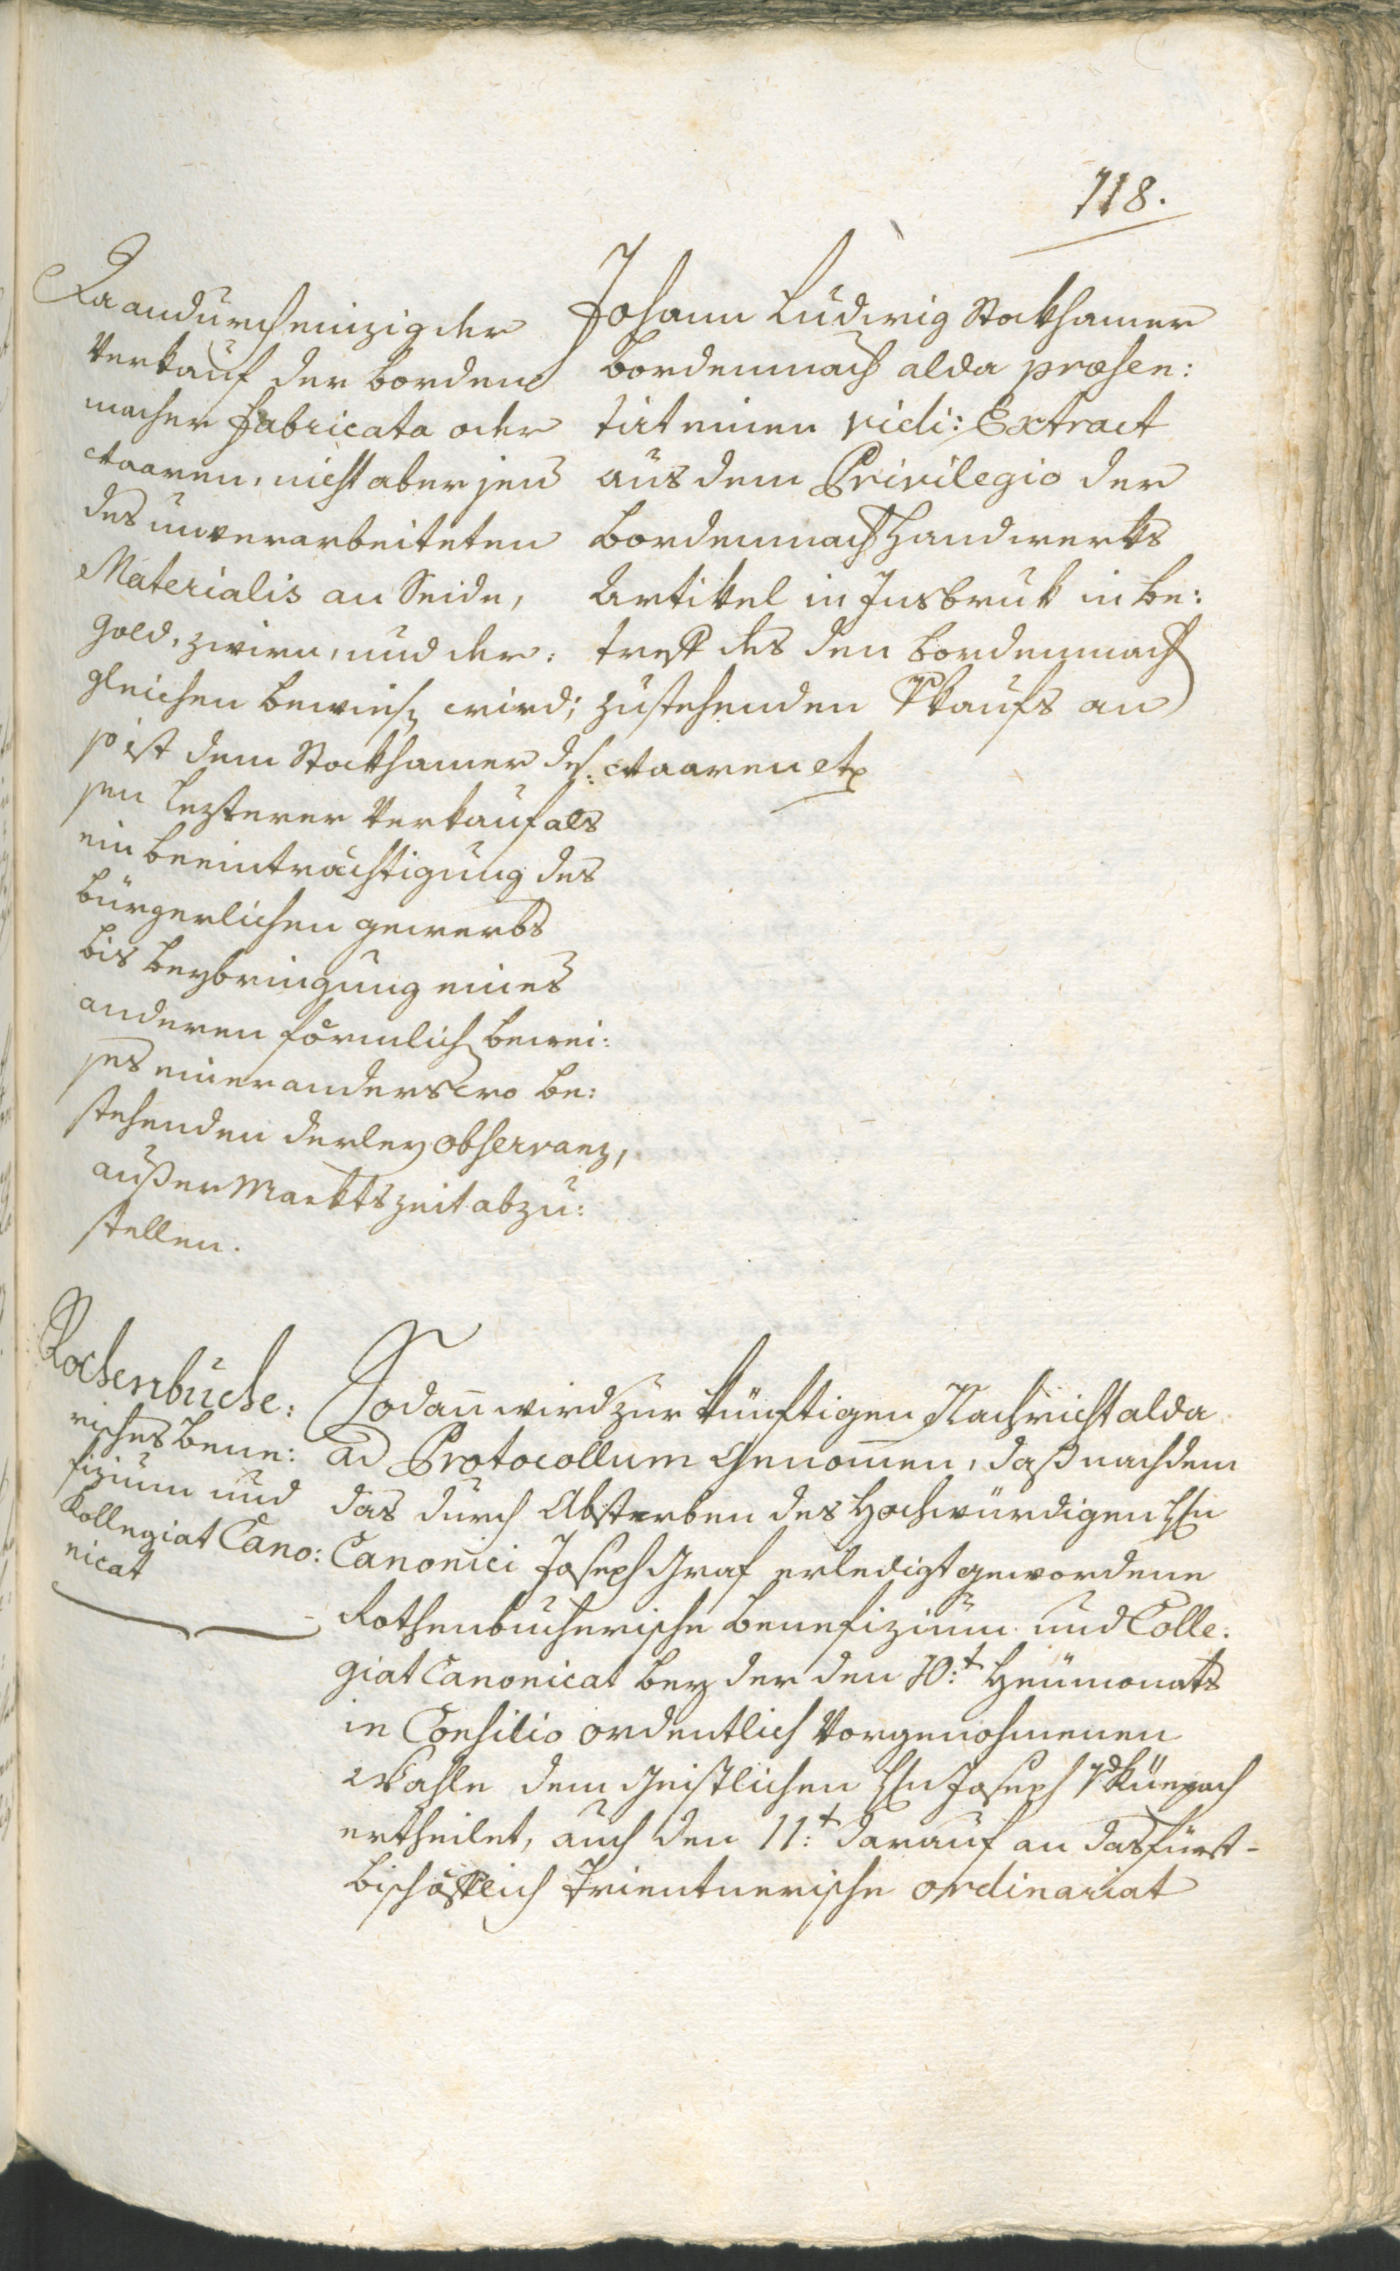 118.
Da andurch einzig der
Verkauf der borden
macher Fabricata oder
Waaren, nicht aber jens
des unverarbeiteten
Materialis an Seide,
gold, zwirn, und der:
gleichen bewiesn wird;
so ist dem Stockhamer des:
sen lezterer Verkauf als
ein beeinträchtigung des
bürgerlichen gewerbs
bis beybringung eines
anderen förmlich bewei:
ses einer anderswo be:
stehenden derley observanz,
ausser Marktszeit abzu:
stellen.
Johann Ludwig Stockhamer
bordenmach alda præsen:
tirt einen vidi: Extract
aus dem Privilegio der
bordenmach Handwerks
Artikel in Insbruk in be:
treff des den bordenmach
zustehenden Vkaufs an
Waaren etc
Rochenbuche:
risches bene:
fizium und
Kollegiat Cano:
nicat
Sodañ wird zur künftigen Nachricht alda
ad Protocollum genom̄en, daß nachdem
das durch Absterben des Hochwürdigen Hn
Canonici Joseph Graf erledigt gewordene
Rothenbucherische benefizium und Colle:
giat Canonicat bey der den 10:t Heumonats
in Consilio ordentlich Vorgenohmenen
Wahle dem geistlichen Hn Joseph
ertheilet, auch den 11:t darauf an das fürst-
bischöflich Trientnerische ordinariat